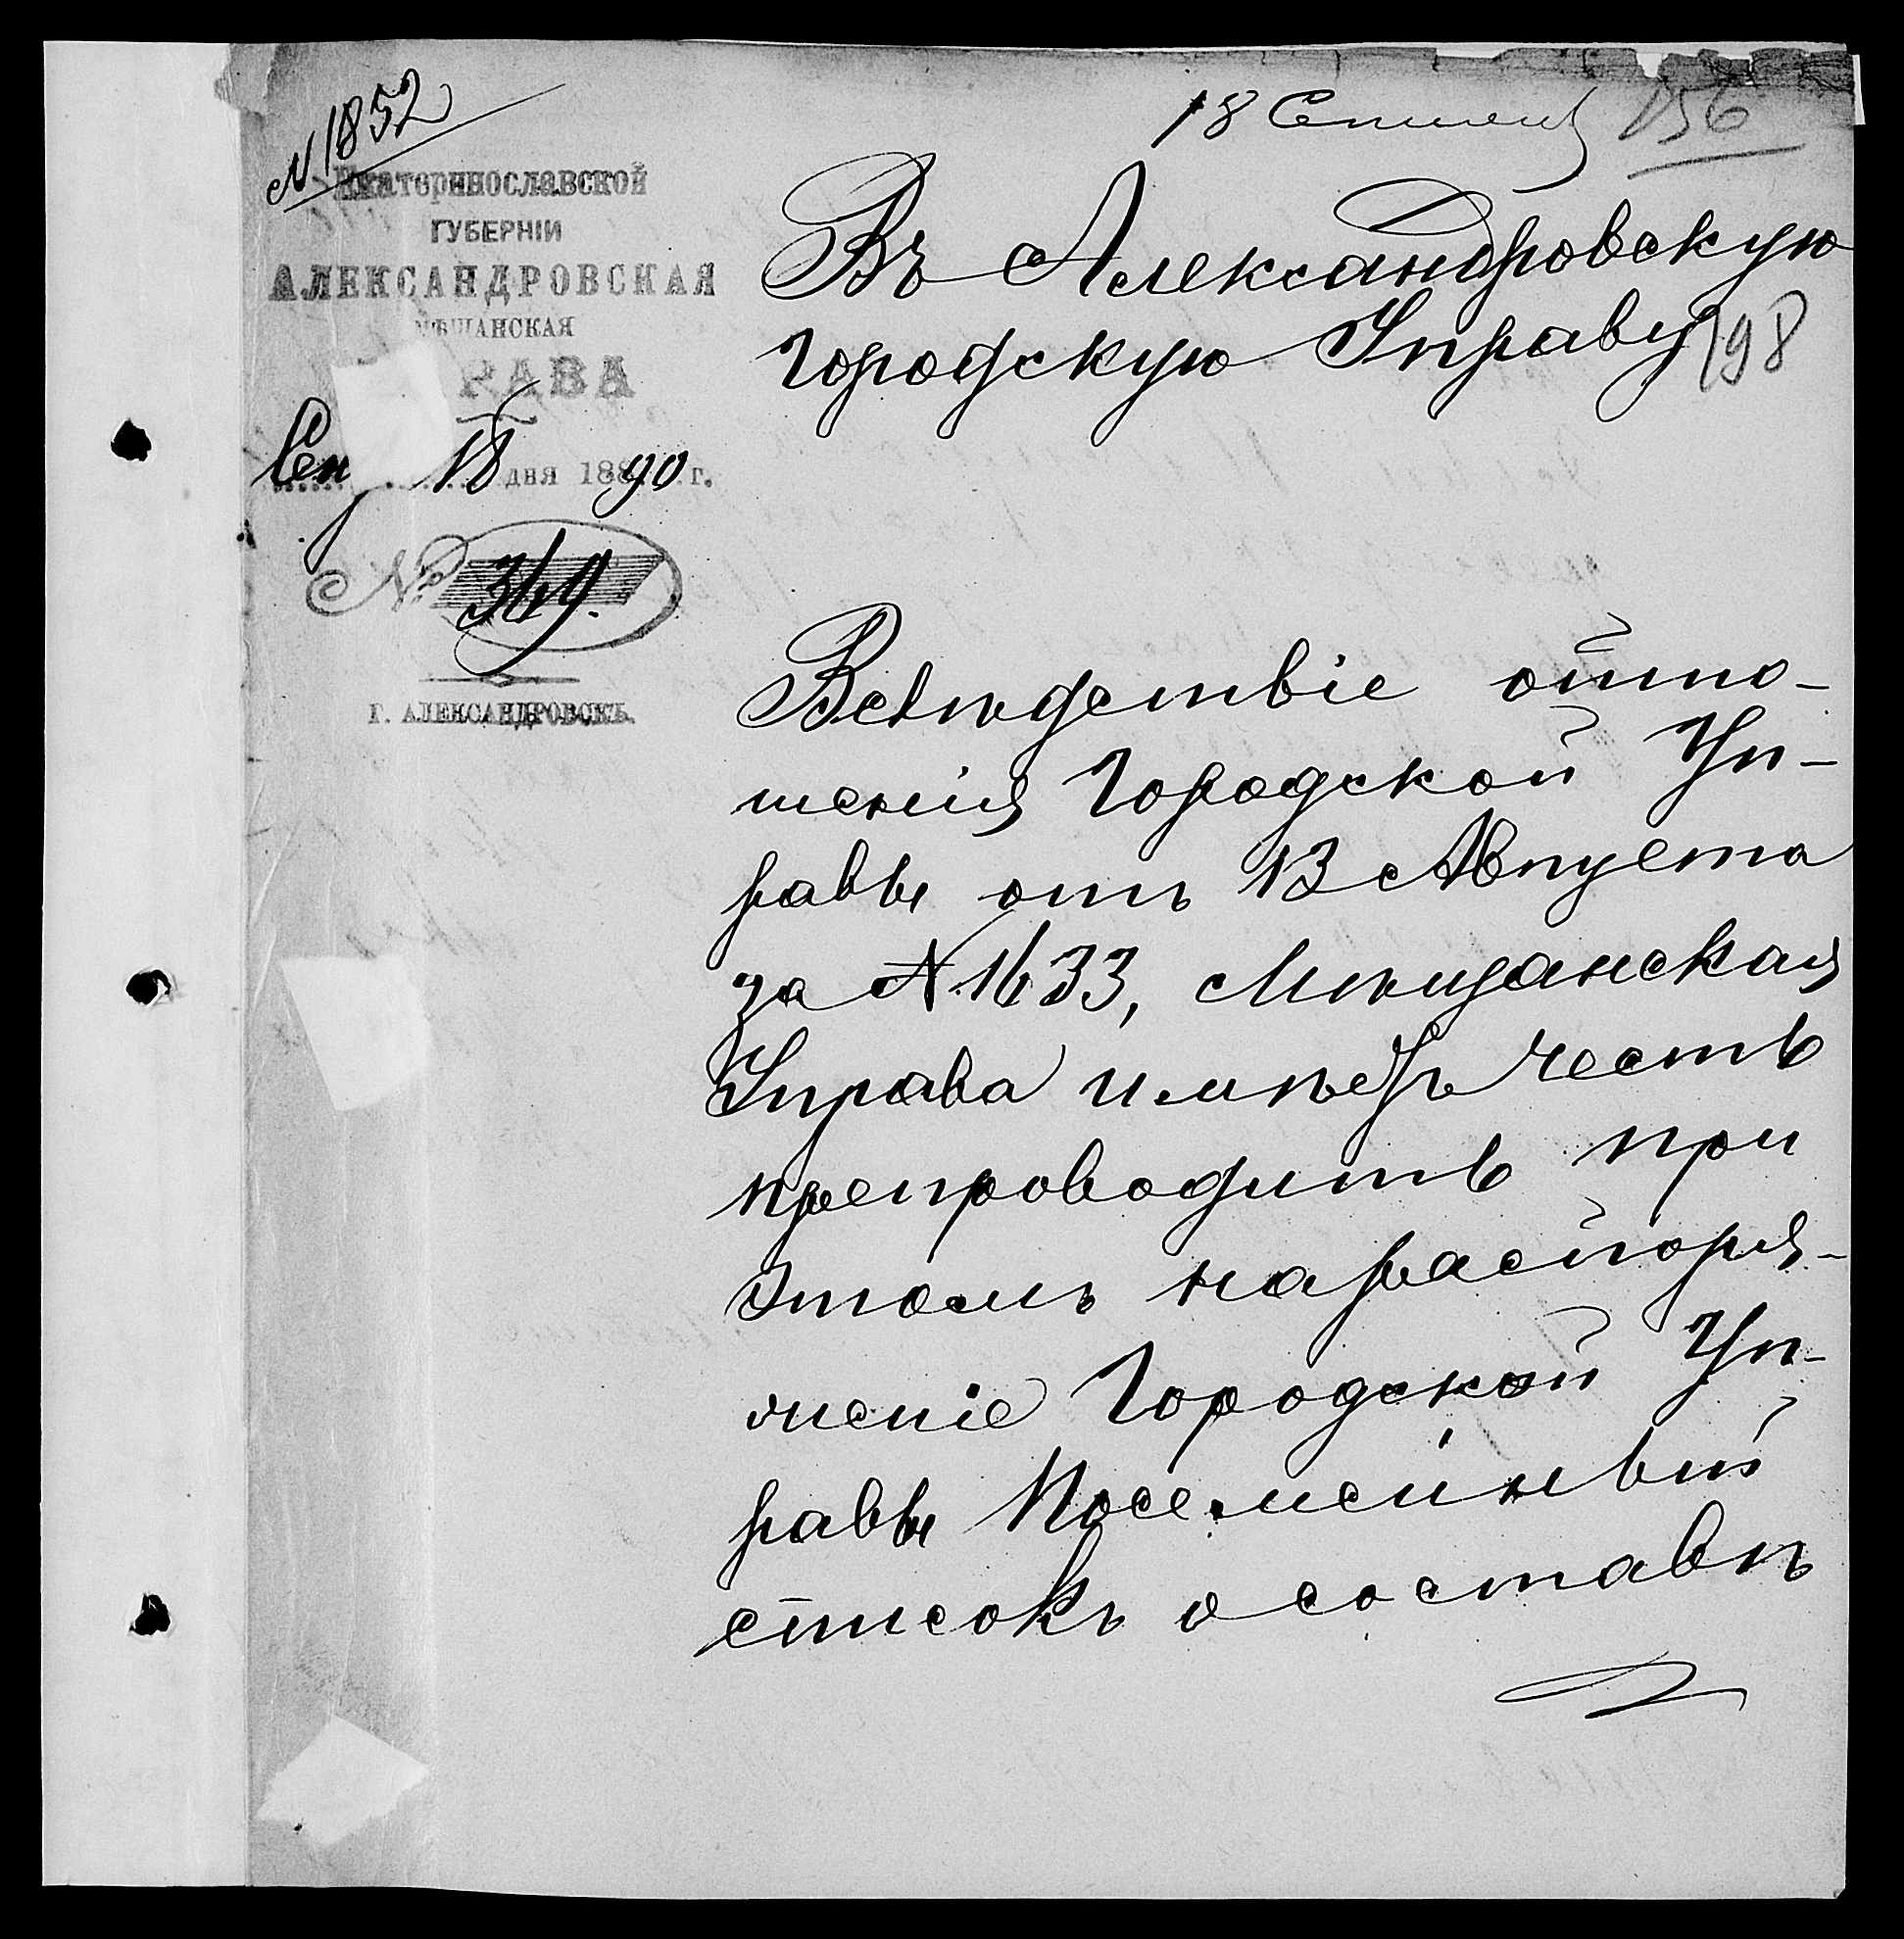 № 1852
18 Сентяб
156
Екатеринославской
ГУБЕРНІИ
АЛЕКСАНДРОВСКАЯ
МѢЩАНСКАЯ
РАВА
Сен 18 дня 1890 г.
№ 349.
Г. АЛЕКСАНДРОВСКЪ.
Въ Александровскую
Городскую Управу
198
Вслѣдствіе отно-
шенія Городской Уп-
равы отъ 13 Августа
за № 1633, Мѣщанская
Управа имѣетъ честь
препроводить при
этомъ на распоря-
женіе Городской Уп-
равы Посемейный
списокъ о составѣ